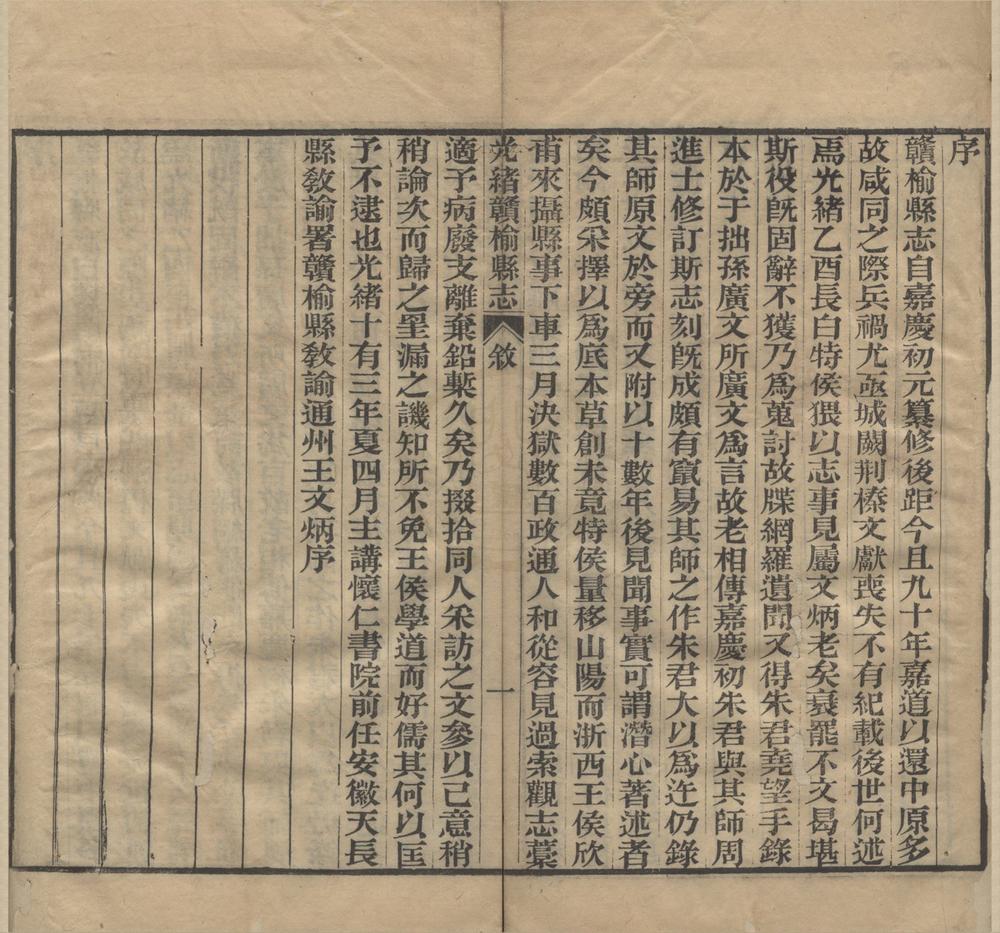 序
贛榆縣志自嘉慶初元纂修後距今且九十年嘉道以還中原多
故咸同之際兵禍尤亟城闕荆榛文獻喪失不有紀載後世何述
焉光緒乙酉長白特侯猥以志事見屬文炳老矣衰罷不文曷堪
斯役旣固辭不獲乃爲蒐討故牒網羅遺聞又得朱君堯望手錄
本於于拙孫廣文所廣文爲言故老相傳嘉慶初朱君與其師周
進士修訂斯志刻旣成頗有竄易其師之作朱君大以爲迕仍錄
其師原文於旁而又附以十數年後見聞事實可謂潛心著述者
矣今頗采擇以爲底本草創未竟特侯量移山陽而浙西王侯欣
甫來攝縣事下車三月決獄數百政通人和從容見過索觀志藳
光緒贛榆縣志 敘 一
適予病廢支離棄鉛槧久矣乃掇拾同人采訪之文參以己意稍
稍論次而歸之罣漏之譏知所不免王侯學道而好儒其何以匡
予不逮也光緒十有三年夏四月主講懷仁書院前任安徽天長
縣敎諭署贛榆縣敎諭通州王文炳序